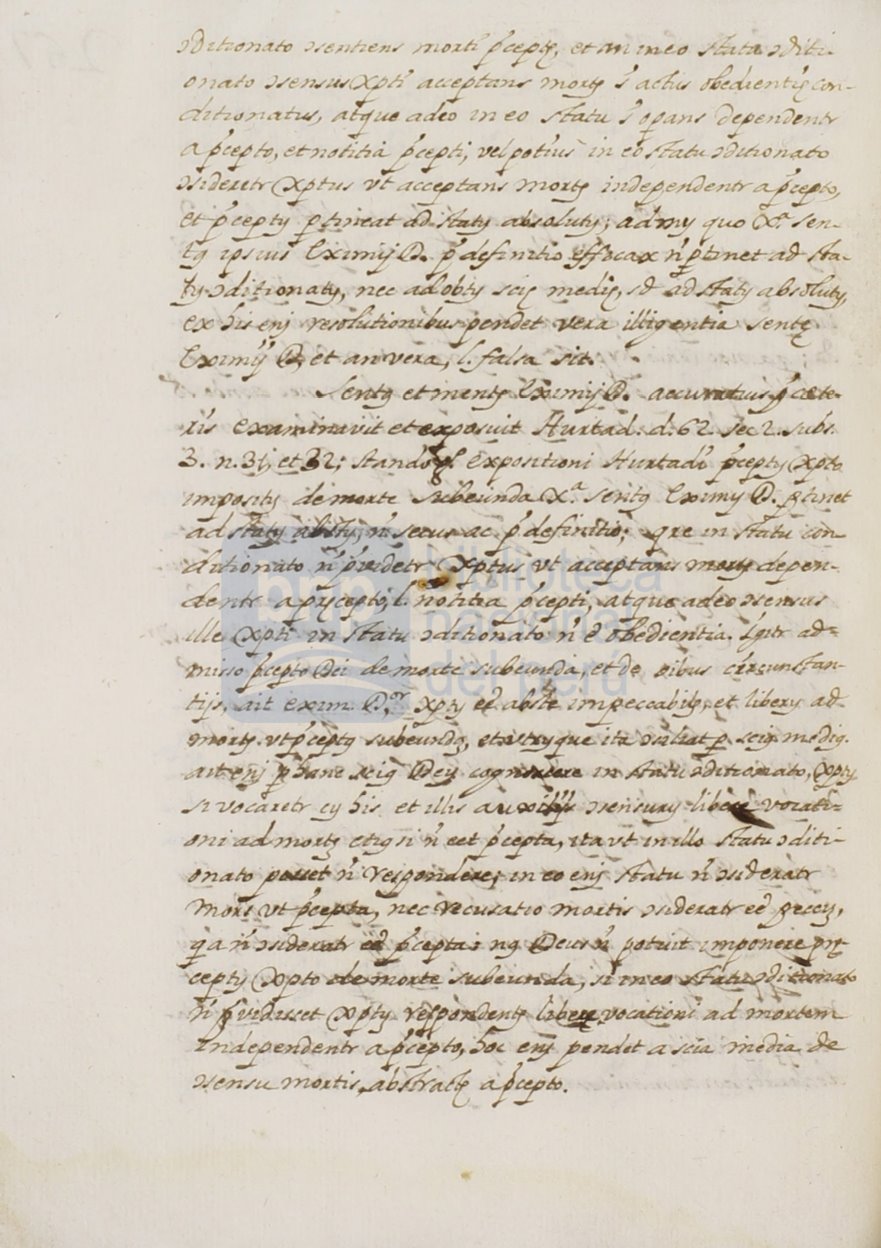 ɔditionato ɔsentiens morti p̃ceptę, et an in eo statu ɔditi-
onato ɔsensus Xpti acceptans mortę s̃ actus obedientię con-
ditionatus, atque adeo in eo statu s̃ operans dependentr
a p̃cepto, et notitia p̃cepti, vel potius in eo statu ɔditionato
ɔsideretr Xptus vt acceptans mortę independentr a p̃cepto,
et p̃ceptų ptineat ad statų absolutų; admų quo Xª sen-
tę ipsius Eximij D. p̃definitio efficax ñ ptinet ad sta-
tų ɔditionatų, nec ad obtų scię medię, sd ad statų absolutų,
ex his enį resolutionibus pendet vera itligentia sentę
Eximij D, et an vera, l. falsa sit.
Sentę et mentę Eximij D. accuratius p̃ cæte-
ris examinavit et exposuit Hurtad. d. 62. sec 2. subs.
3. n. 31, et 32; stando expositioni Hurtadi p̃ceptų Xpto
impositų de morte subeunda Xª sentę Eximij D. ptinet
ad statų absltų, ñ secus ac p̃definitio; qre in statu con-
ditionato ñ p̃videtr Xptus vt acceptans mortę depen-
dentr a pręcepto, l. notitia p̃cepti, atque adeo ɔsensus
ille Xpti in statu ɔditionato ñ ẽ obedientia. Igitr ad-
misso p̃cepto Dei de morte subeunda, et de oibus circunstan-
tijs, ait exim. D.ᵒʳ Xptų eẽ abste impeccabilę, et liberų ad
mortę vt p̃ceptę subeundą, et vtrųque ita ɔciliat p scią medią.
ait enį p hanc scią Deų cognoscere in statu ɔditionato, Xptų
si vocaretr cų his et illis auxilijs ɔsensurų libere vocati-
oni ad mortę etią si ñ eet p̃cepta, ita vt in illo statu ɔditi-
onato posset ñ respondere; in eo enį statu ñ ɔsideratr
mors vt p̃cepta, nec recusatio mortis ɔsideratr eẽ peccų,
qa ñ ɔsideratr eẽ p̃cepta: ną Deus ñ potuit imponere prę-
ceptų Xpto de morte subeunda, si in eo statu ɔditionato
ñ p̃vidisset Xptų respondentę libere vocationi ad mortem
independentr a p̃cepto, hoc enį pendet a scia media de
ɔsensu mortis, abstractę a p̃cepto.
bnp biblioteca
nacional
del perú